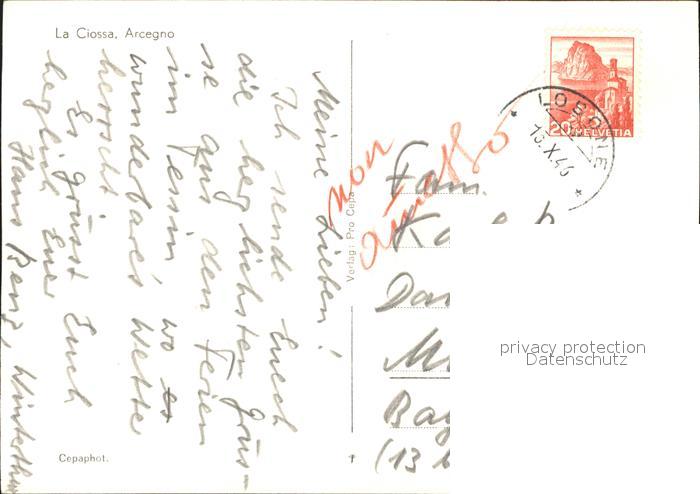 La Ciossa, Arcegno
Meine Lieben!
Ich sende Euch
die herzlichsten Grüs-
se aus den Ferien
im Tessin, wo es
wunderbares Wetter
herrscht.
Es grüsst Euch
herzlich Euer
Hans Benz, Winterthur
Cepaphot.
Verlag: Pro Cepa
non
ammesso
20 HELVETIA
LOSONE
13.X.46
Fam.
(13
privacy protection
Datenschutz